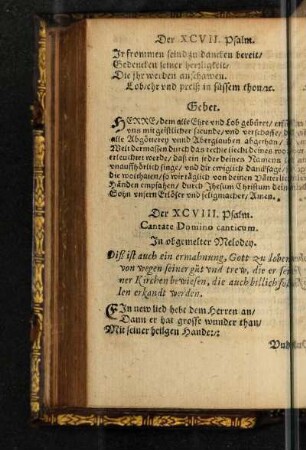 Der XCVII. Psalm.
Ir frommen seind zu dancken bereit/
Gedencken seiner herrligkeit/
Die jhr werden anschawen.
Lob/ehr vnd preiß in süssem thon/ec.
Gebet.
HERRE/ dem alle Ehre vnd Lob gebüret/
vns mit geistlicher freunde/ vnd verschaffe/
alle Abgötterey vnnd Aberglauben abgethan/
Welt dermassen durch das rechte liecht deines
erleuchtet werde/ daß ein jeder deinen Namen
vnauffhörlich singe/ vnd dir ewiglich dancksage/
die wolthaten/ so wir täglich von deinen Vätterlichen
Händen empfahen/ durch Jhesum Christum deinen
Sohn vnsern Erlöser vnd seligmacher/ Amen.
Der XCVIII. Psalm.
Cantate Domino canticum.
In obgemelter Melodey.
Diß ist auch ein ermahnung, Gott zu loben
von wegen seiner güt vnd trew, die er sei-
ner Kirchen bewiesen, die auch billich sol
len erkandt werden.
EIn new lied hebt dem Herren an/
Dann er hat grosse wunder than/
Mit seiner heilgen Hande:/: